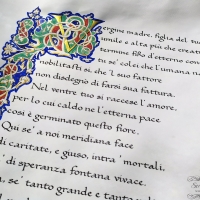 ergine madre, figlia del tuo
umile e alta più che creatu
termine fisso d'etterno con
tu se' colei che l'umana n
nobilitasti sì, che 'l suo fattore
non disdegnò di farsi sua fattura.
Nel ventre tuo si raccese l'amore,
per lo cui caldo ne l'etterna pace
così è germinato questo fiore.
Qui se' a noi meridiana face
di caritate, e giuso, intra ' mortali,
se' di speranza fontana vivace.
a, se' tanto grande e tanto